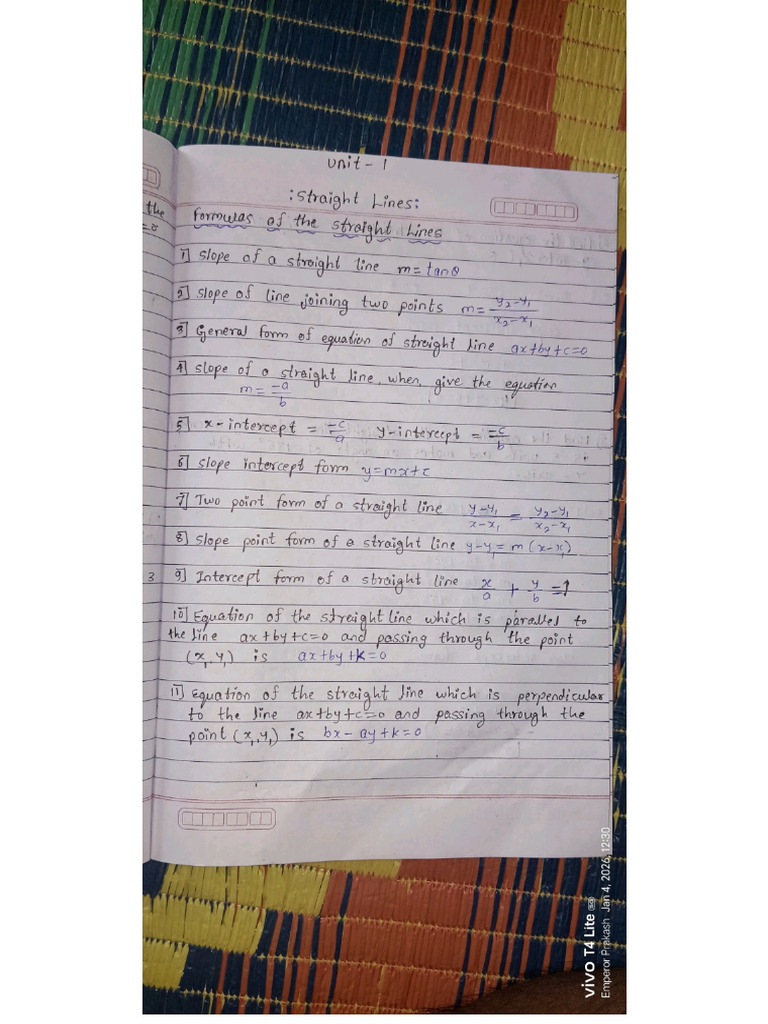 Unit - 1
:Straight Lines:
the
Formulas of the straight Lines
=0
1] Slope of a straight line m=tanθ
2] Slope of line joining two points m= y₂-y₁/x₂-x₁
3] General form of equation of straight line ax+by+c=0
4] Slope of a straight line, when, give the equation
m= -a/b
5] x-intercept = -c/a y-intercept = -c/b
6] Slope intercept form y=mx+c
7] Two point form of a straight line y-y₁/x-x₁ = y₂-y₁/x₂-x₁
8] Slope point form of a straight line y-y₁=m(x-x₁)
3
9] Intercept form of a straight line x/a + y/b =1
10] Equation of the streight line which is parallel to
the line ax+by+c=0 and passing through the point
(x₁,y₁) is ax+by+k=0
11] Equation of the straight line which is perpendicular
to the line ax+by+c=0 and passing through the
point (x₁,y₁) is bx-ay+k=0
vivo T4 Lite 5G
Emperor Prakash Jan 4, 2026, 12:30